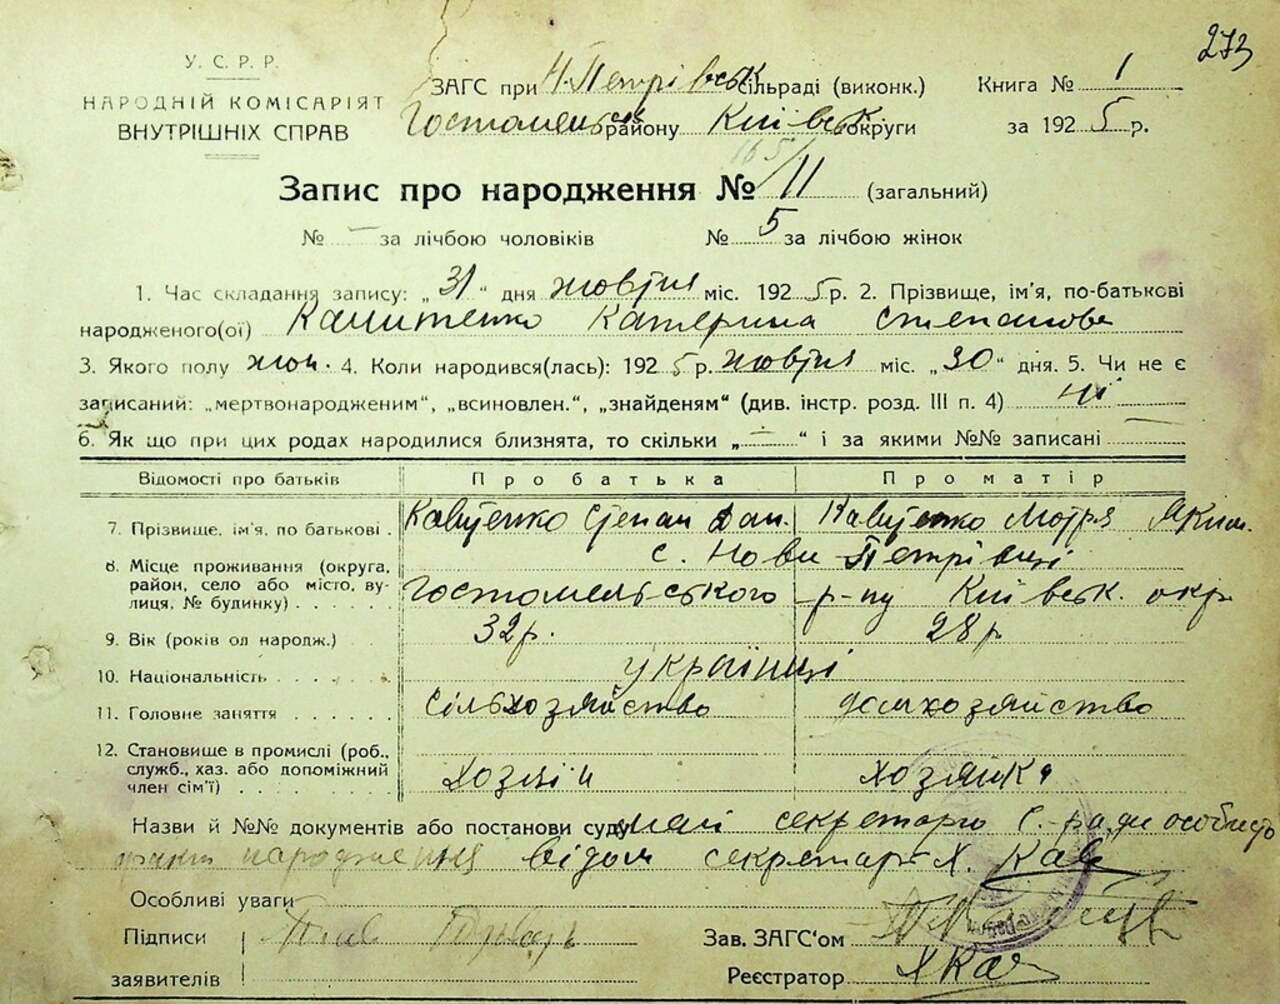 273
У. С. Р. Р.
НАРОДНІЙ КОМІСАРІЯТ
ВНУТРІШНІХ СПРАВ
ЗАГС при Н.Петрівськ сільраді (виконк.) Книга № 1
Гостомельськ району Київськ округи за 1925 р.
Запис про народження № 11 (загальний)
№ - за лічбою чоловіків № 5 за лічбою жінок
1. Час складання запису: „31“ дня жовтня міс. 1925 р. 2. Прізвище, ім'я, по-батькові
народженого(ої) Катерина Степанова
3. Якого полу жін. 4. Коли народився(лась): 1925 р. жовтня міс. „30“ дня. 5. Чи не є
записаний: „мертвонародженим“, „всиновлен.“, „знайденям“ (див. інстр. розд. III п. 4) ні
6. Як що при цих родах народилися близнята, то скільки „-“ і за якими №№ записані
Відомості про батьків Про батька Про матір
7. Прізвище, ім'я, по батькові . Степан Дан. Мотря Яким.
с. Нови Петрівці
8. Місце проживання (округа, район, село або місто, вулиця, № будинку) . . . . . Гостомельського р-ну Київськ. окр
9. Вік (років од народж.) 32р. 28р
10. Національність . . . . . українці
11. Головне заняття . . . . . . сільхозяйство домхозяйство
12. Становище в промислі (роб., служб., хаз. або допоміжний член сім'ї) . . . . . . . хозяін хозяйка
Назви й №№ документів або постанови суду мені секретарю С.-ради особисто
факт народження відом секретар Х. Кав
Особливі уваги
Підписи
заявителів
Зав. ЗАГС'ом
Реєстратор ХКав